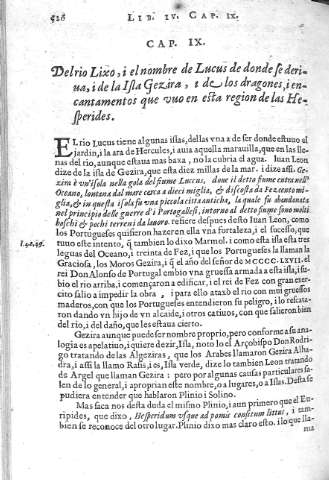 528 LIB. IV. CAP. IX.
CAP. IX.
Del rio Lixo, i el nombre de Lucus de donde se deri-
ua, i de la Isla Gezira, i de los dragones, i en-
cantamentos que vuo en esta region de las He-
sperides.
EL rio Lucus tiene algunas islas, dellas vna a de ser donde estuuo el
jardin, i la ara de Hercules, i aua aquella marauilla, que en las lle-
nas del rio, aunque estaua mas baxa, no la cubria el agua. Iuan Leon
dize de la isla de Gezira, que esta diez millas de la mar. i dize assi. Ge-
zira è vn'isola nella gola del fiume Luccus, doue il detto fiume entra nell'
Oceano, lontana dal mare cerca a dieci miglia, & discosta da Fez cento mi-
glia, & in questa isola fu vna picciola città antiche, la quale fu abandonata
nel principio delle guerre di i Portogallesi, intorno al detto fiume sono molti
boschi & pochi terreni da lauoro. refiere despues desto Iuan Leon, como
los Portogueses quisieron hazer en ella vna fortaleza, i el sucesso, que
tuuo este intento, q̃ tambien lo dixo Marmol. i como esta isla esta tres
leguas del Oceano, i treinta de Fez, i que los Portogueses la llaman la
Graciosa, los Moros Gezira, i q̃ el año del señor de MCCCC.LXVII. el
rei Don Alonso de Portugal embio vna gruessa armada a esta isla, i su-
bio el rio arriba, i començaron a edificar, i el rei de Fez con gran exer-
cito salio a impedir la obra, i para ello ataxò el rio con mui gruessos
maderos, con que los Portogueses entendieron su peligro, i lo rescata-
ron dando vn hijo de vn alcaide, i otros cativos, con que salieron bien
del rio, i del daño, que les estaua cierto.
Gezira aunque puede ser nombre proprio, pero conforme a su ana-
logia es apelatiuo, i quiere dezir, Isla, notò lo el Arçobispo Don Rodri-
go tratando de las Algeziras, que los Arabes llamaron Gezira Alha-
dra, i assi la llamo Rasis, i es, Isla verde, dize lo tambien Leon tratando
de Argel que llaman Gezira: pero por algunas causas particulares sa-
len de lo general, i apropian este nombre, o a lugares, o a Islas. Desta se
pudiera entender que hablaron Plinio i Solino.
Mas saca nos desta duda el mismo Plinio, i aun primero que el Eu-
ripides, que dixo, Hesperidum vsque ad pomis consitum littus, i tam-
bien se reconoce del otro lugar. Plinio dixo mas claro esto. i lo que lla-
ma